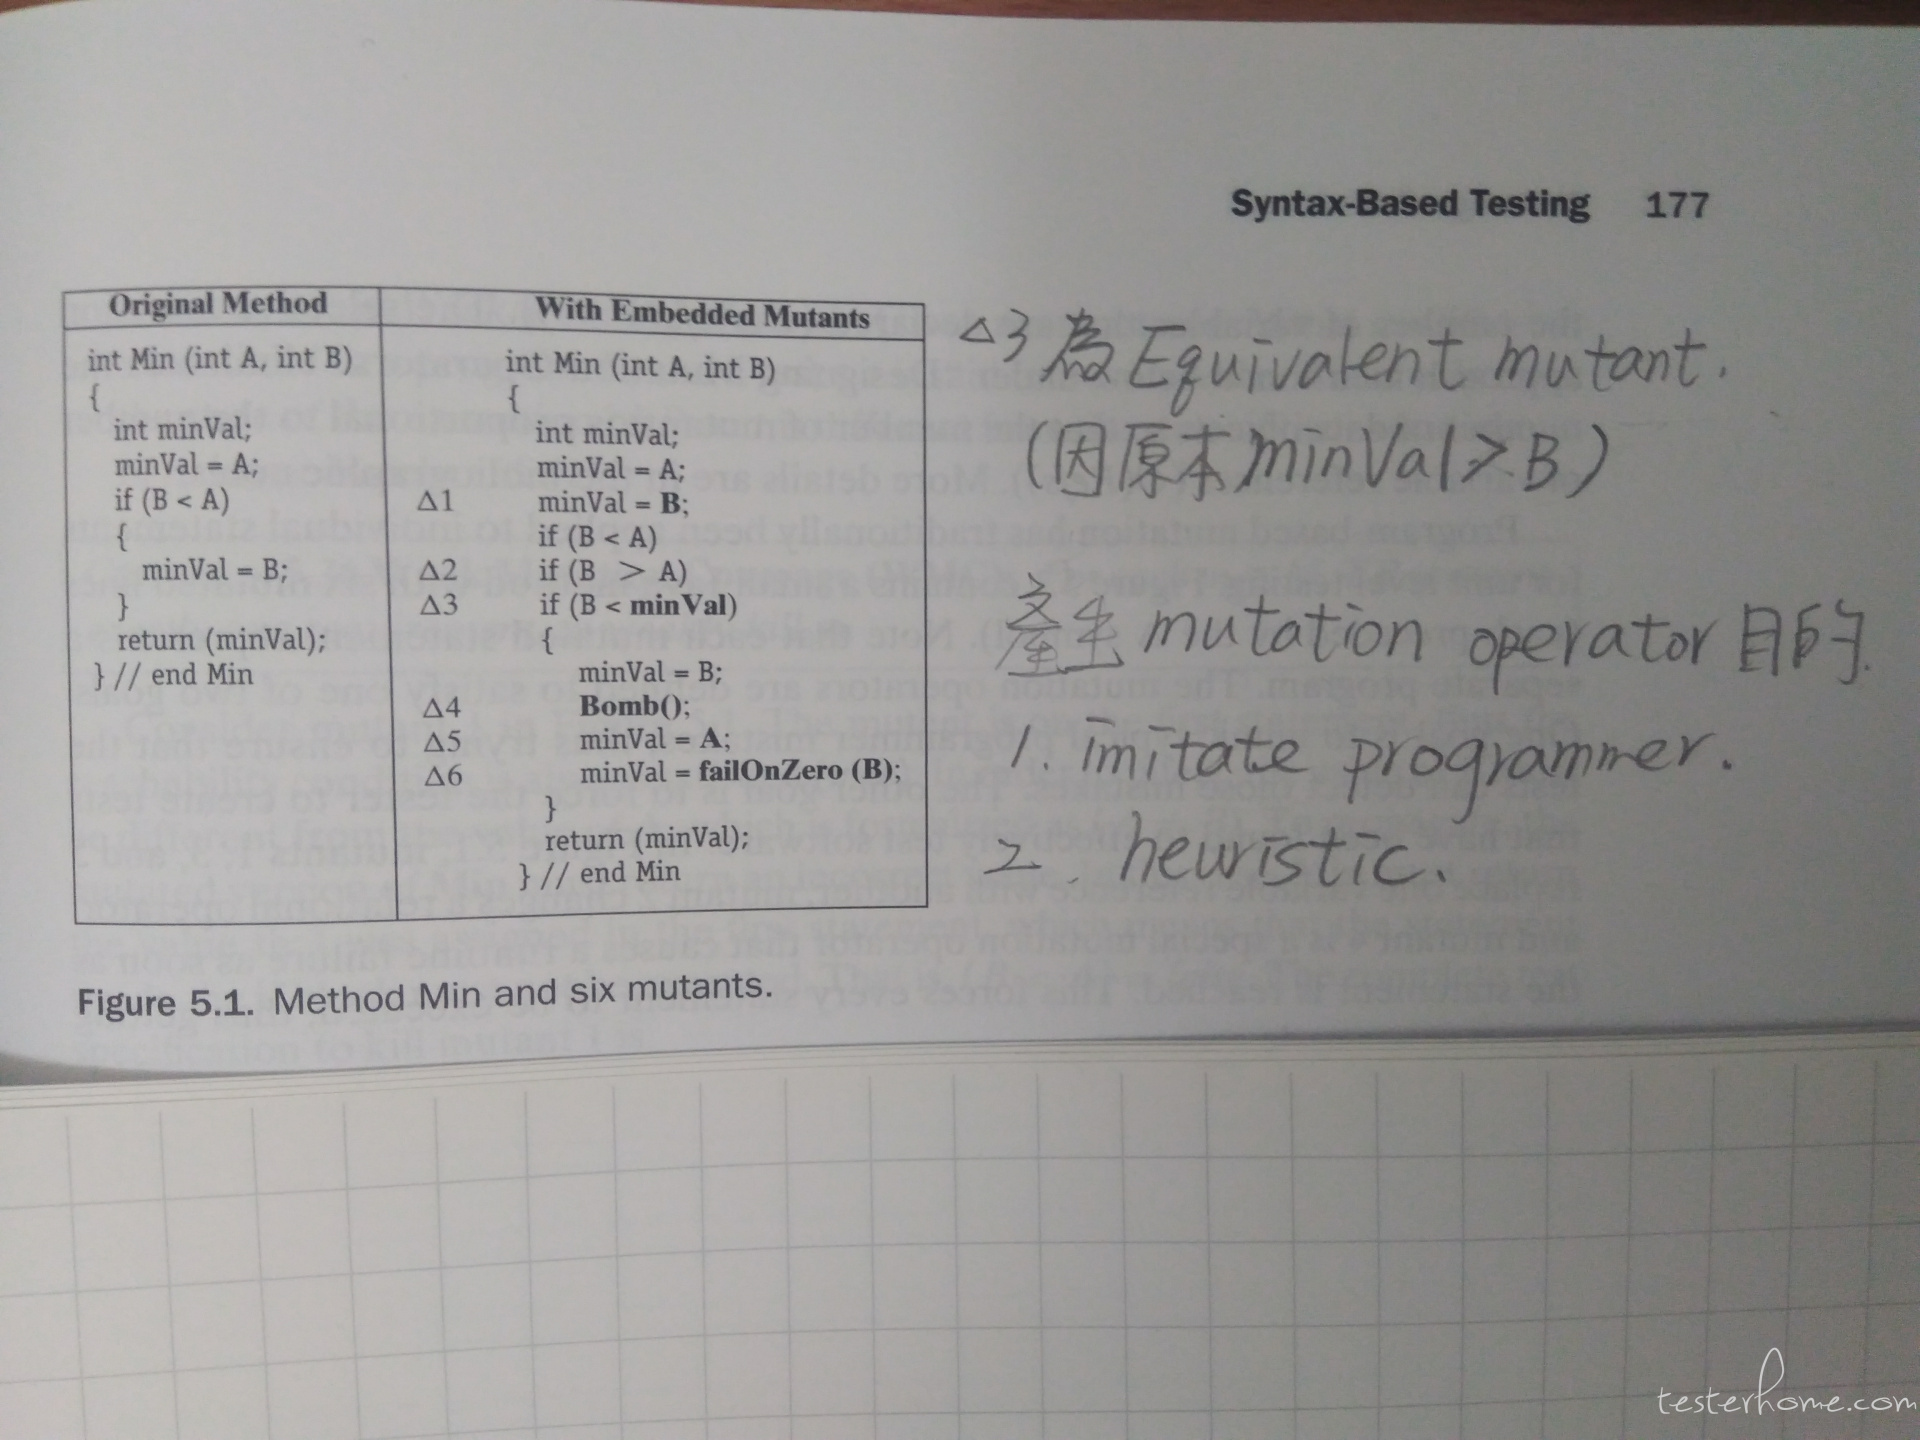 Syntax-Based Testing 177
Original Method
int Min (int A, int B)
{
int minVal;
minVal = A;
if (B < A)
{
minVal = B;
}
return (minVal);
} // end Min
With Embedded Mutants
int Min (int A, int B)
{
int minVal;
minVal = A;
Δ1 minVal = B;
if (B < A)
Δ2 if (B > A)
Δ3 if (B < minVal)
{
minVal = B;
Δ4 Bomb();
Δ5 minVal = A;
Δ6 minVal = failOnZero (B);
}
return (minVal);
} // end Min
Figure 5.1. Method Min and six mutants.
Δ3為Equivalent mutant.
(因原本minVal>B)
產生mutation operator目的.
1. imitate programmer.
2. heuristic.
testerhome.com